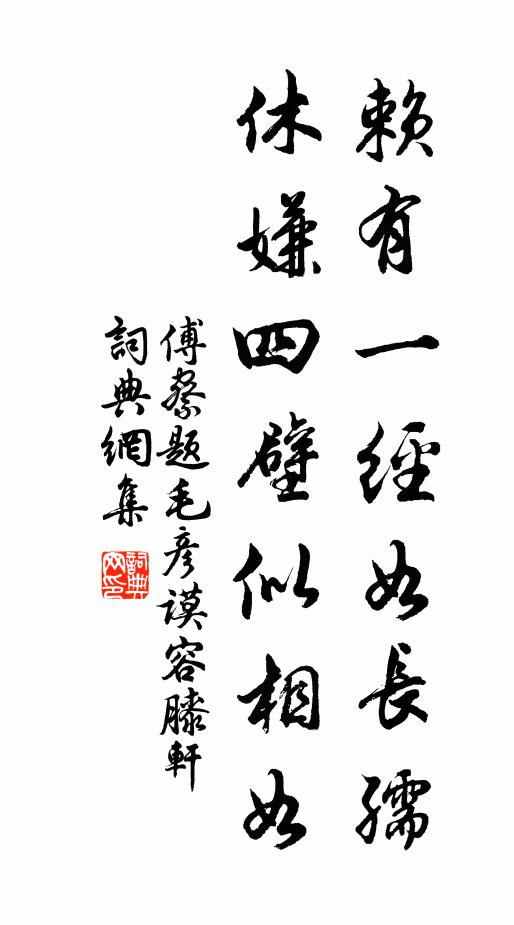 賴有一經如長孺
休嫌四壁似相如
傅察題毛彥謨容膝軒
詞典網集
詞典网印